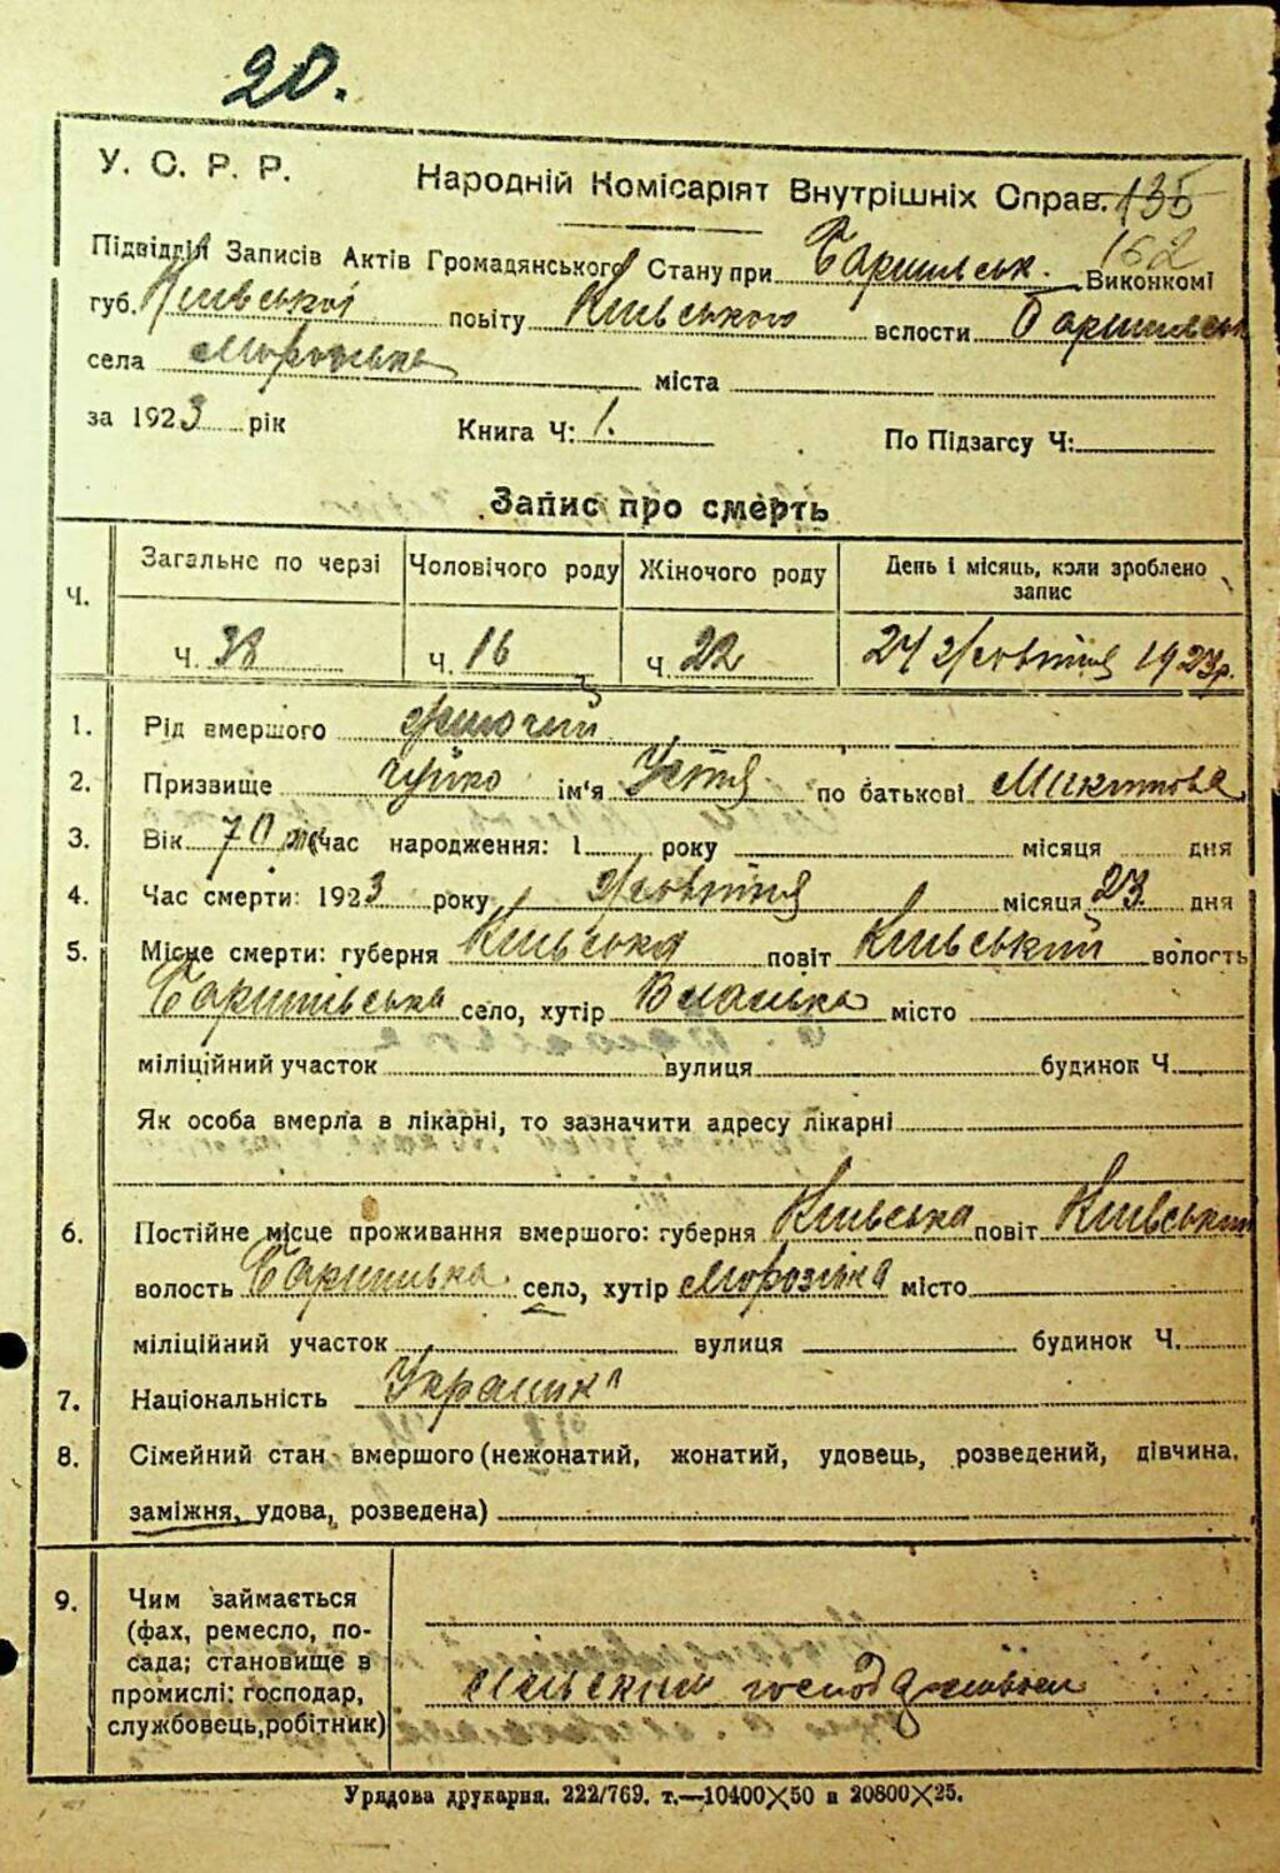 20.
У. С. Р. Р. Народній Комісаріят Внутрішніх Справ. 135
162
Підвідділ Записів Актів Громадянського Стану при Баришльськ. Виконкомі
губ. Київської повіту Київського вслости Баришльськ
села Морозівка міста
за 1923 рік Книга Ч: 1. По Підзагсу Ч:
Запис про смерть
Ч. Загальне по черзі Чоловічого роду Жіночого роду День і місяць, коли зроблено запис
Ч. 38 Ч. 16 Ч. 22 24 Жовтня 1923р.
1. Рід вмершого жіночий
2. Призвище Чуйко ім'я Устя по батькові Микитова
3. Вік 70 час народження: 1 року місяця дня
4. Час смерти: 1923 року Жовтня місяця 23 дня
5. Місце смерти: губерня Київська повіт Київський волость
Баришівська село, хутір місто
міліційний участок вулиця будинок Ч.
Як особа вмерла в лікарні, то зазначити адресу лікарні
6. Постійне місце проживання вмершого: губерня Київська повіт Київський
волость село, хутір Морозівка місто
міліційний участок вулиця будинок Ч.
7. Національність Українка
8. Сімейний стан вмершого (нежонатий, жонатий, удовець, розведений, дівчина,
заміжня, удова, розведена)
9. Чим займається
(фах, ремесло, по-
сада; становище в
промислі: господар,
службовець, робітник)
сільским господарством
Урядова друкарня. 222/769. т.—10400×50 и 20800×25.